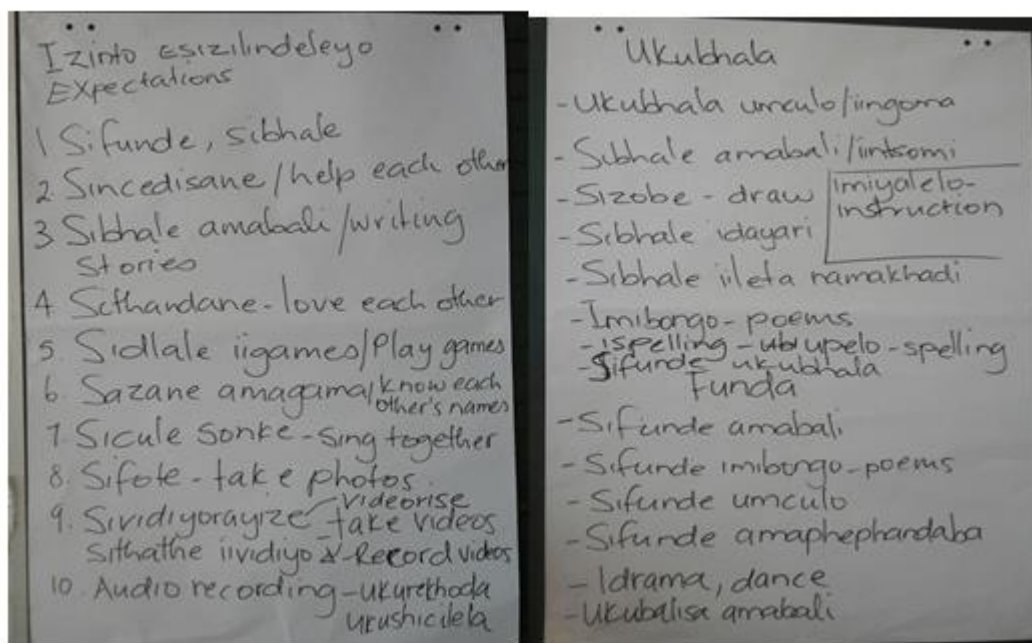 Izinto Esizilindeleyo
Expectations
1 Sifunde, sibhale
2. Sincedisane/help each other
3 Sibhale amabali/writing
Stories
4 Sithandane-love each other
5. Sidlale iigames/Play games
6. Sazane amagama/know each
other's names
7. Sicule Sonke-Sing together
8. Sifote - take photos
9. Sividiyorayize videorise
take videos
Sithathe iividiyo Record videos
10. Audio recording-ukurekhoda
ukushicilela
Ukubhala
-Ukubhala umculo/iingoma
-Sibhale amabali/iintsomi
-Sizobe - draw
imiyalelo-
instruction
-Sibhale idayari
-Sibhale iileta namakhadi
-Imibongo-poems
-ispelling-ublupelo-spelling
-Sifunde ukubhala
Funda
-Sifunde amabali
-Sifunde imibongo-poems
-Sifunde umculo
-Sifunde amaphephandaba
-Idrama, dance
-Ukubalisa amabali